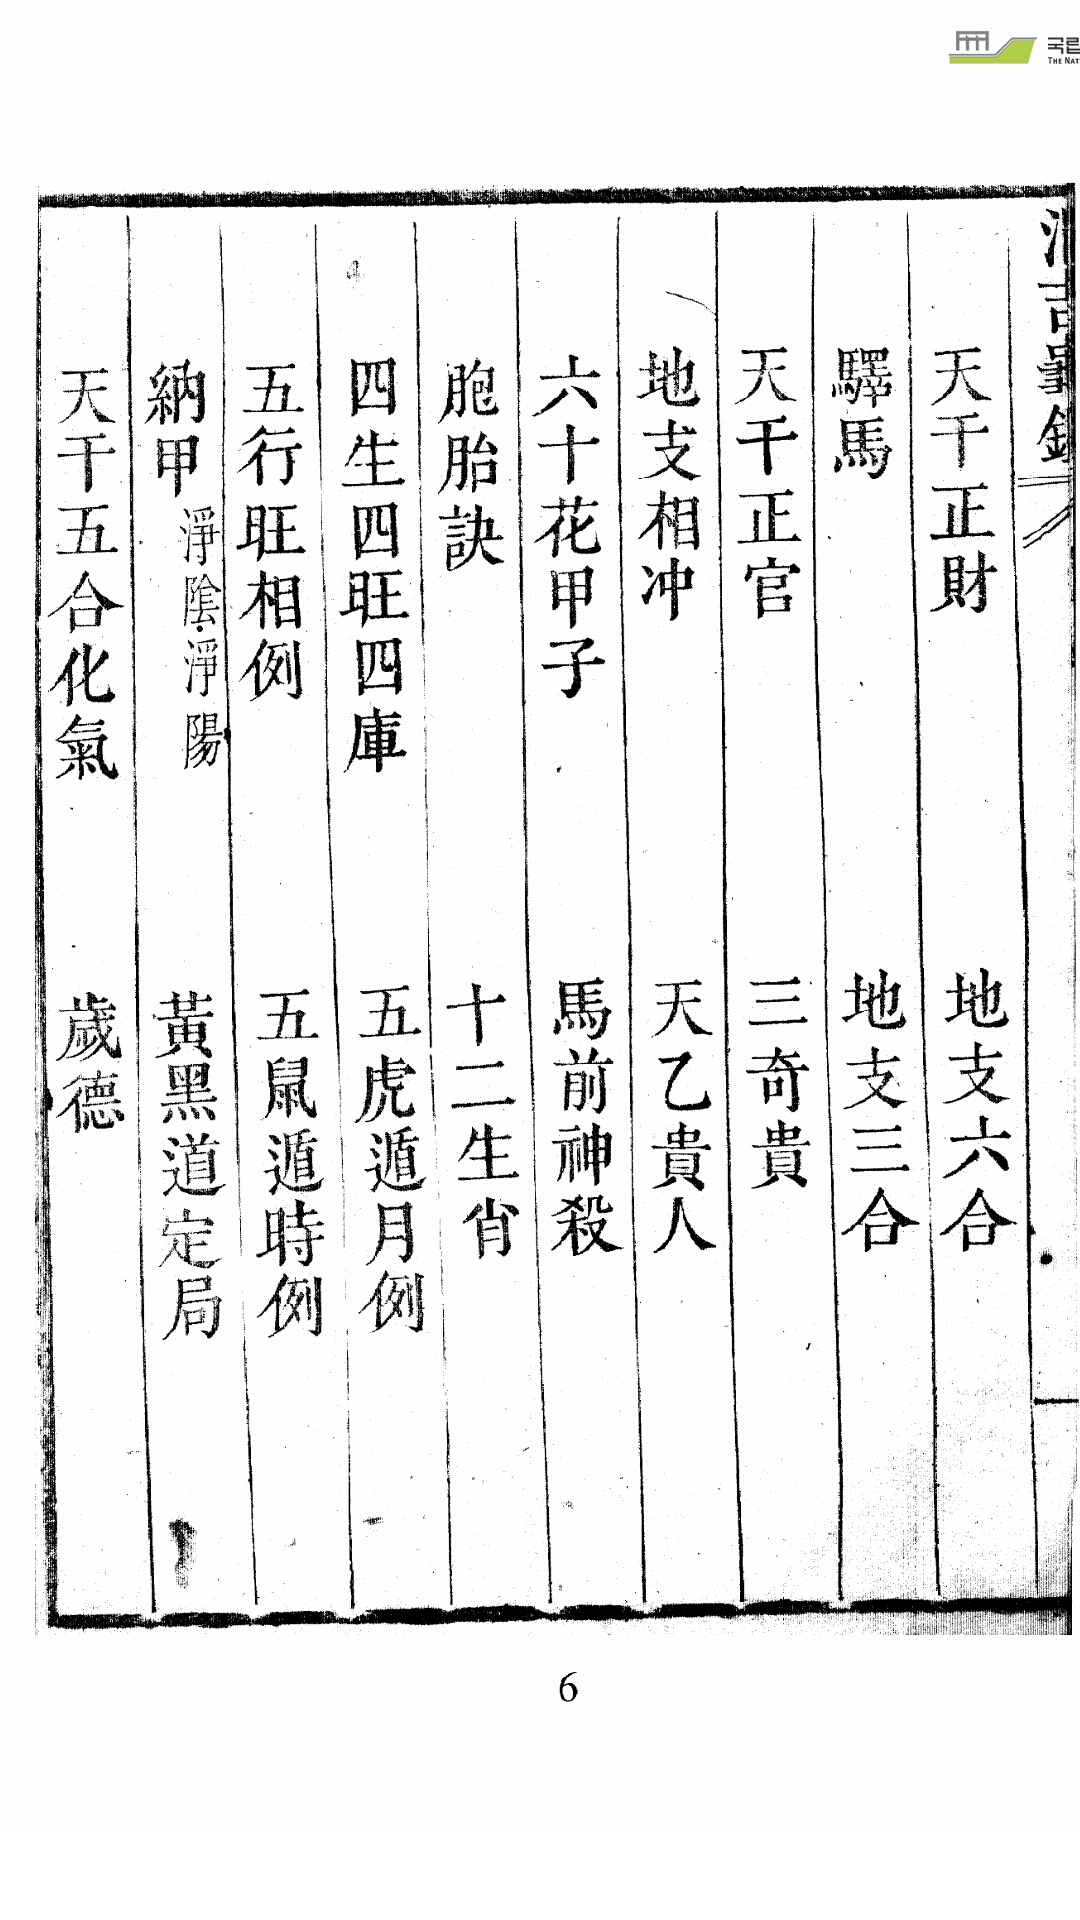 국립
THE NAT
吉彙
天干正財 地支六合
驛馬 地支三合
天干正官 三奇貴
地支相冲 天乙貴人
六十花甲子 馬前神殺
胞胎訣 十二生肖
四生四旺四庫 五虎遁月例
五行旺相例 五鼠遁時例
納甲 淨陰淨陽 黃黑道定局
天干五合化氣 歲德
6